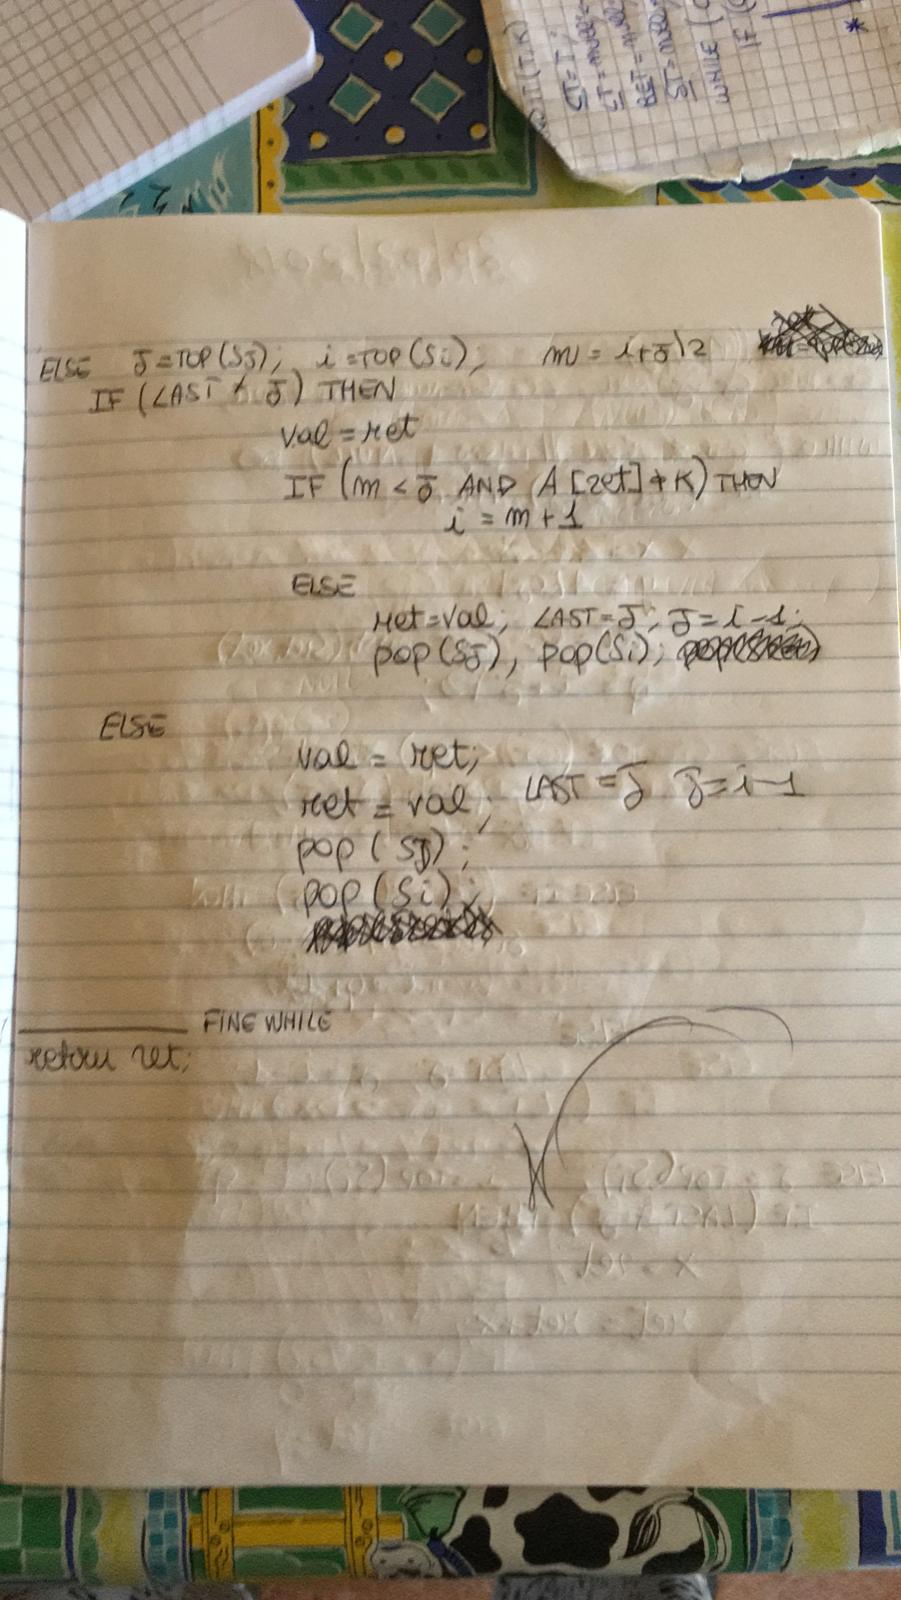 ELSE J=TOP(SJ); i=TOP(Si); m = i+J)2
IF (LAST ≠ J) THEN
val = ret
IF (m < J AND A[ret] ≠ K) THEN
i = m+1
ELSE
ret=val; LAST=J; J=i-1;
pop(SJ), pop(Si);
ELSE
val = ret;
ret = val; LAST = J J=i-1
pop(SJ);
pop(Si);
FINE WHILE
return ret;
WHILE (
IF